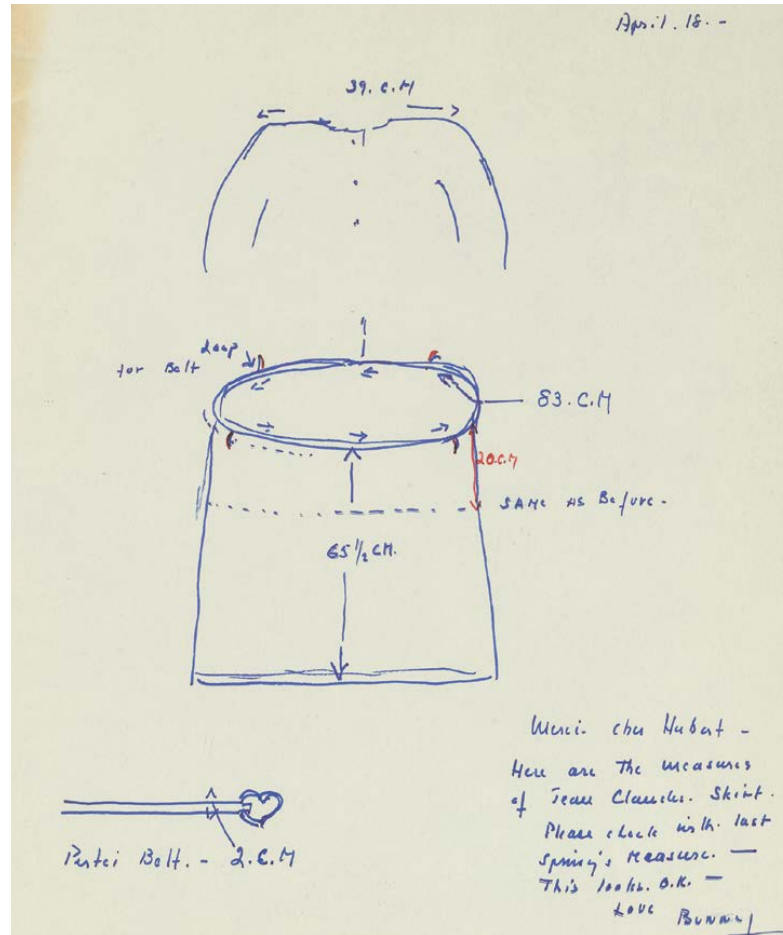 April. 18. -
39. C.M
Loop
for Belt
83. C.M
20C.M
SAME AS Before -
65 1/2 CM.
Merci cher Hubert -
Here are The measures
of Jean Claudes. Skirt.
Please check with last
Spring's measure. —
This looks. O.K. —
Love Bunny
Belt. - 2. C.M